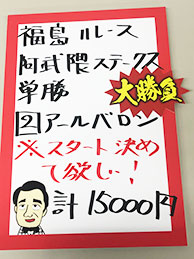 福島11レース
阿武隈ステークス
単勝
大勝負
2アールバロン
※スタート決め
て欲しー!
計15000円